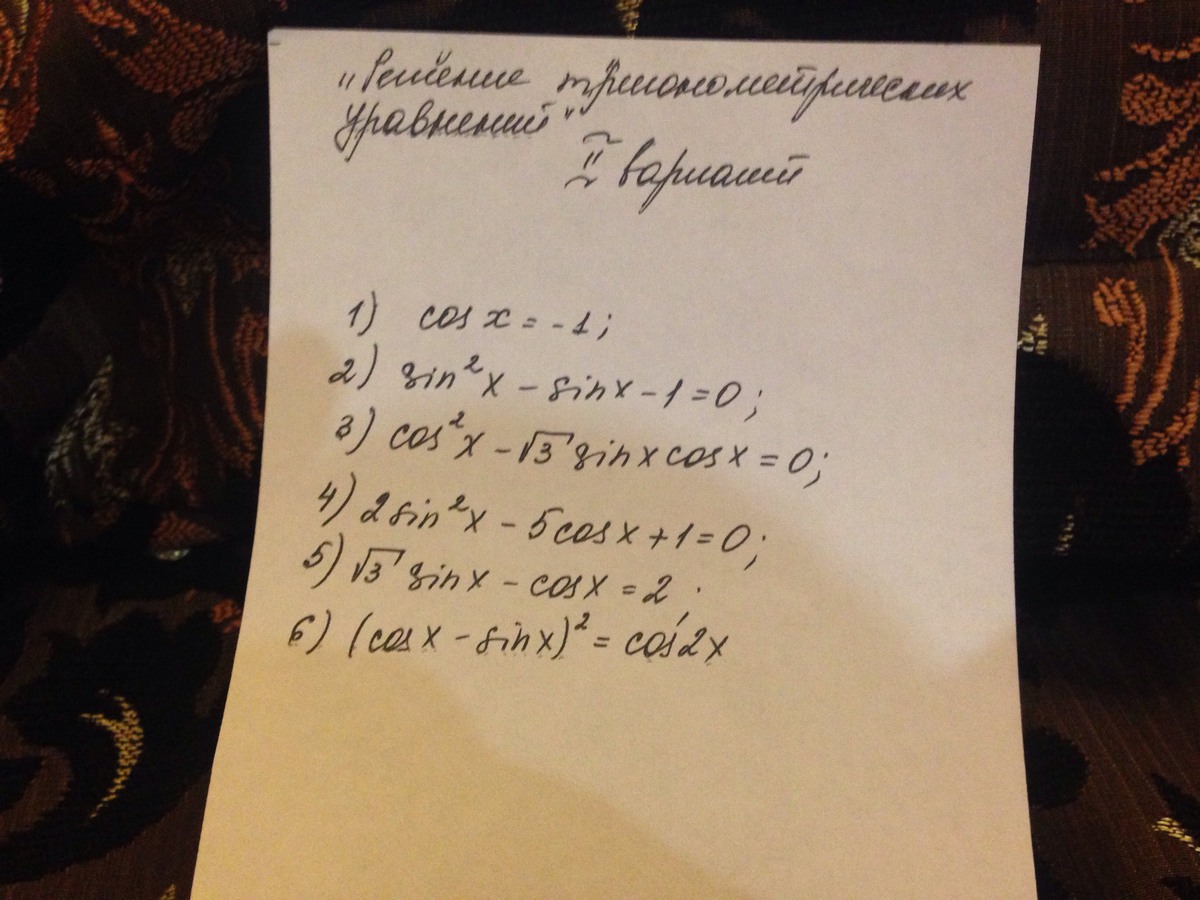 "Решение тригонометрических
уравнений"
II вариант
1) cos x = -1;
2) sin²x - sinx - 1 = 0;
3) cos²x - √3 sinx cosx = 0;
4) 2sin²x - 5cosx + 1 = 0;
5) √3 sinx - cosx = 2;
6) (cosx - sinx)² = cos2x